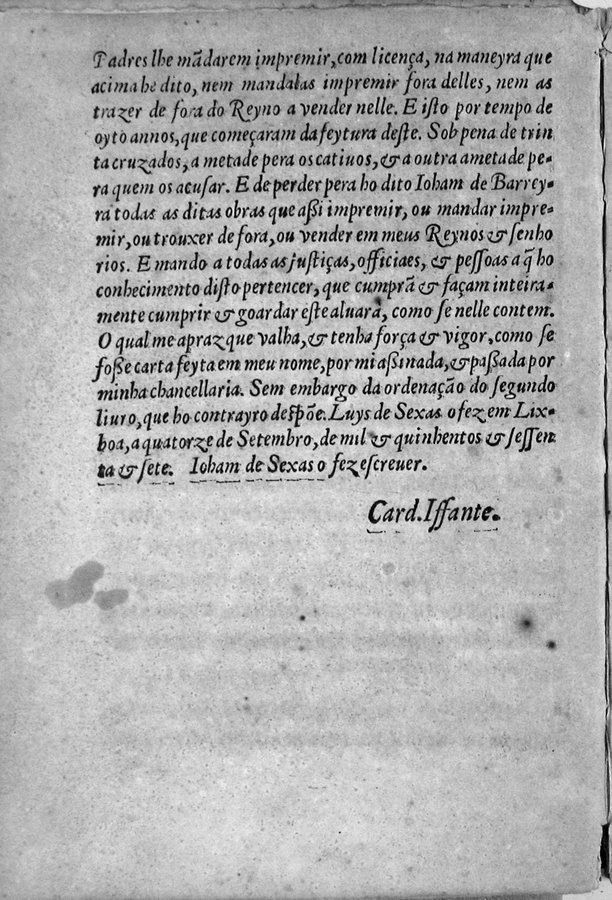 Padres lhe mãdarem impremir, com licença, na maneyra que
acima he dito, nem mandalas impremir fora delles, nem as
trazer de fora do Reyno a vender nelle. E iſto por tempo de
oyto annos, que começaram da feytura deſte. Sob pena de trin
ta cruzados, a metade pera os catiuos, & a outra ametade pe-
ra quem os acuſar. E de perder pera ho dito Ioham de Barrey-
ra todas as ditas obras que aßi impremir, ou mandar impre-
mir, ou trouxer de fora, ou vender em meus Reynos & ſenho
rios. E mando a todas as juſtiças, officiaes, & peſſoas a q̃ ho
conhecimento diſto pertencer, que cumprã & façam inteira-
mente cumprir & goardar eſte aluara, como ſe nelle contem.
O qual me apraz que valha, & tenha força & vigor, como ſe
foße carta feyta em meu nome, por mi aßinada, & paßada por
minha chancellaria. Sem embargo da ordenação do ſegundo
liuro, que ho contrayro deſpõe. Luys de Sexas o fez em Lix-
boa, a quatorze de Setembro, de mil & quinhentos & ſeſſen
ta & ſete. Ioham de Sexas o fez eſcreuer.
Card. Iffante.